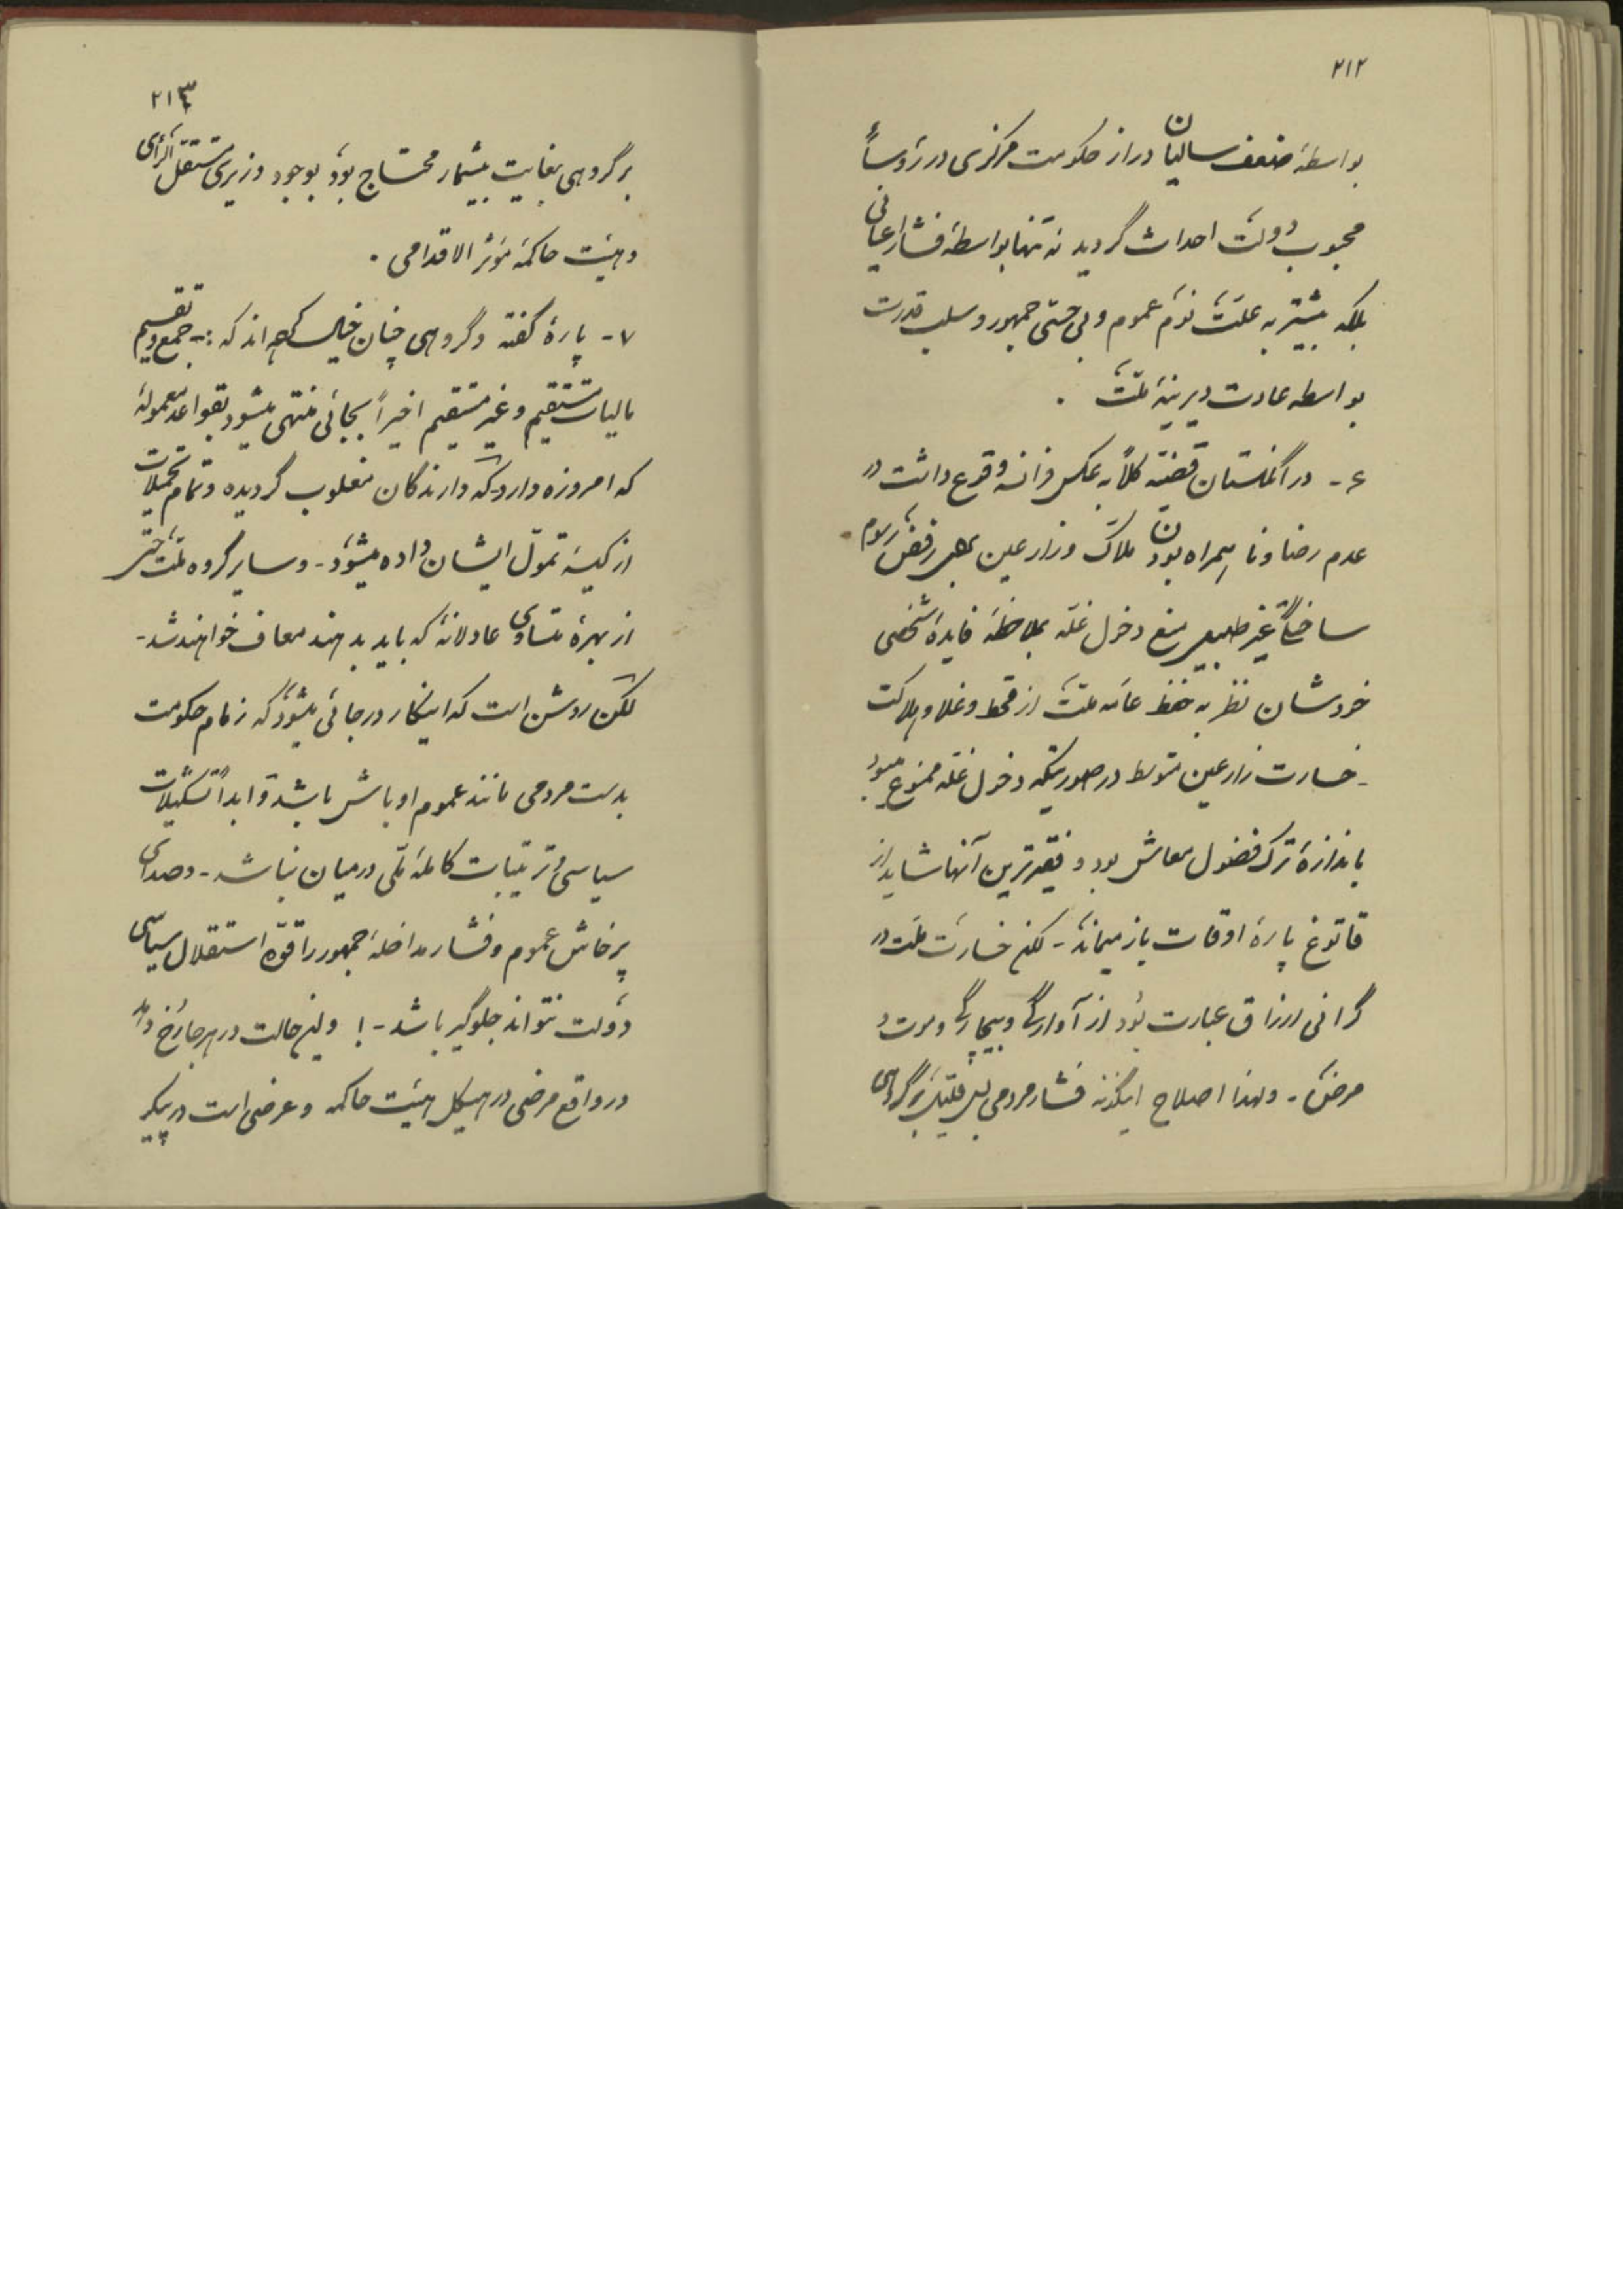 ۲۱۲
بواسطهٔ ضعف سالیان دراز حکومت مرکزی در رؤساءٔ
محبوب دولت احداث گردید نه تنها بواسطهٔ فشار اعیانی
بلکه بیشتر به علّت نوم عموم و بی حسّی جمهور و سلب قدرت
بواسطه عادت دیرینهٔ ملّت .
۶ - در انگلستان قضیّه کلاً به عکس فرانسه وقوع داشت در
عدم رضا و نا همراه بودن ملاّک و زارعین رفض رسوم
ساختگی غیر طبیعی منع دخول غلّه بملاحظهٔ فایدهٔ شخصی
خودشان نظر به حفظ عامّه ملّت از قحط و غلا و هلاکت
- خسارت زارعین متوسط در صورتیکه دخول غلّه ممنوع میبود
باندازهٔ ترک فضول معاش بود و فقیرترین آنها شاید از
قاتوغ پارهٔ اوقات باز میماند - لکن خسارت ملّت در
گرانی ارزاق عبارت بود از آوارگی و بیچارگی و موت و
مرض - و لهذا اصلاح اینگونه فشار مردمی بس قلیل بر گروهی
۲۱۳
بر گروهی بغایت بیشمار محتاج بود بوجود وزیری مستقل الرّأی
و هیئت حاکمهٔ مؤثر الاقدامی .
۷ - پارهٔ گفته و گروهی چنان خیال کرده اند که :- جمع و تقسیم
مالیات مستقیم و غیر مستقیم اخیراً بجائی منتهی میشود بقواعد معمولهٔ
که امروزه وارد که دارندگان مغلوب گردیده و تمام تحمیلات
از کیسهٔ تموّل ایشان داده میشود - و سایر گروه ملّت حتّی
از بهرهٔ متساوی عادلانهٔ که باید بدهند معاف خواهند شد -
لکن روشن است که اینکار در جائی میشود که زمام حکومت
بدست مردمی مانند عموم اوباش باشد و ابداً تشکیلات
سیاسی و ترتیبات کاملهٔ ملّی در میان نباشد - و صدای
پرخاش عموم و فشار مداخلهٔ جمهور را قوّه استقلال سیاسی
دولت نتواند جلوگیر باشد - ! و این حالت در هر جا رخ داد
در واقع مرضی در هیکل هیئت حاکمه و عرضی است در پیکر